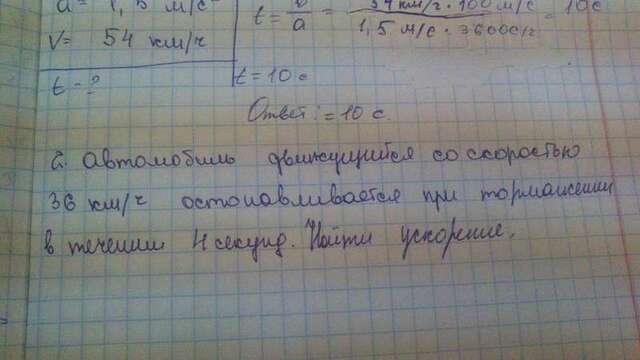 a = 1,5 м/с
V = 54 км/ч
t - ?
t = v/a = 54 км/ч · 100 м/с / 1,5 м/с · 3600 с/ч = 10 с
t = 10 с
Ответ: = 10 с.
2. Автомобиль движущийся со скоростью
36 км/ч останавливается при тормажении
в течении 4 секунд. Найти ускорение.